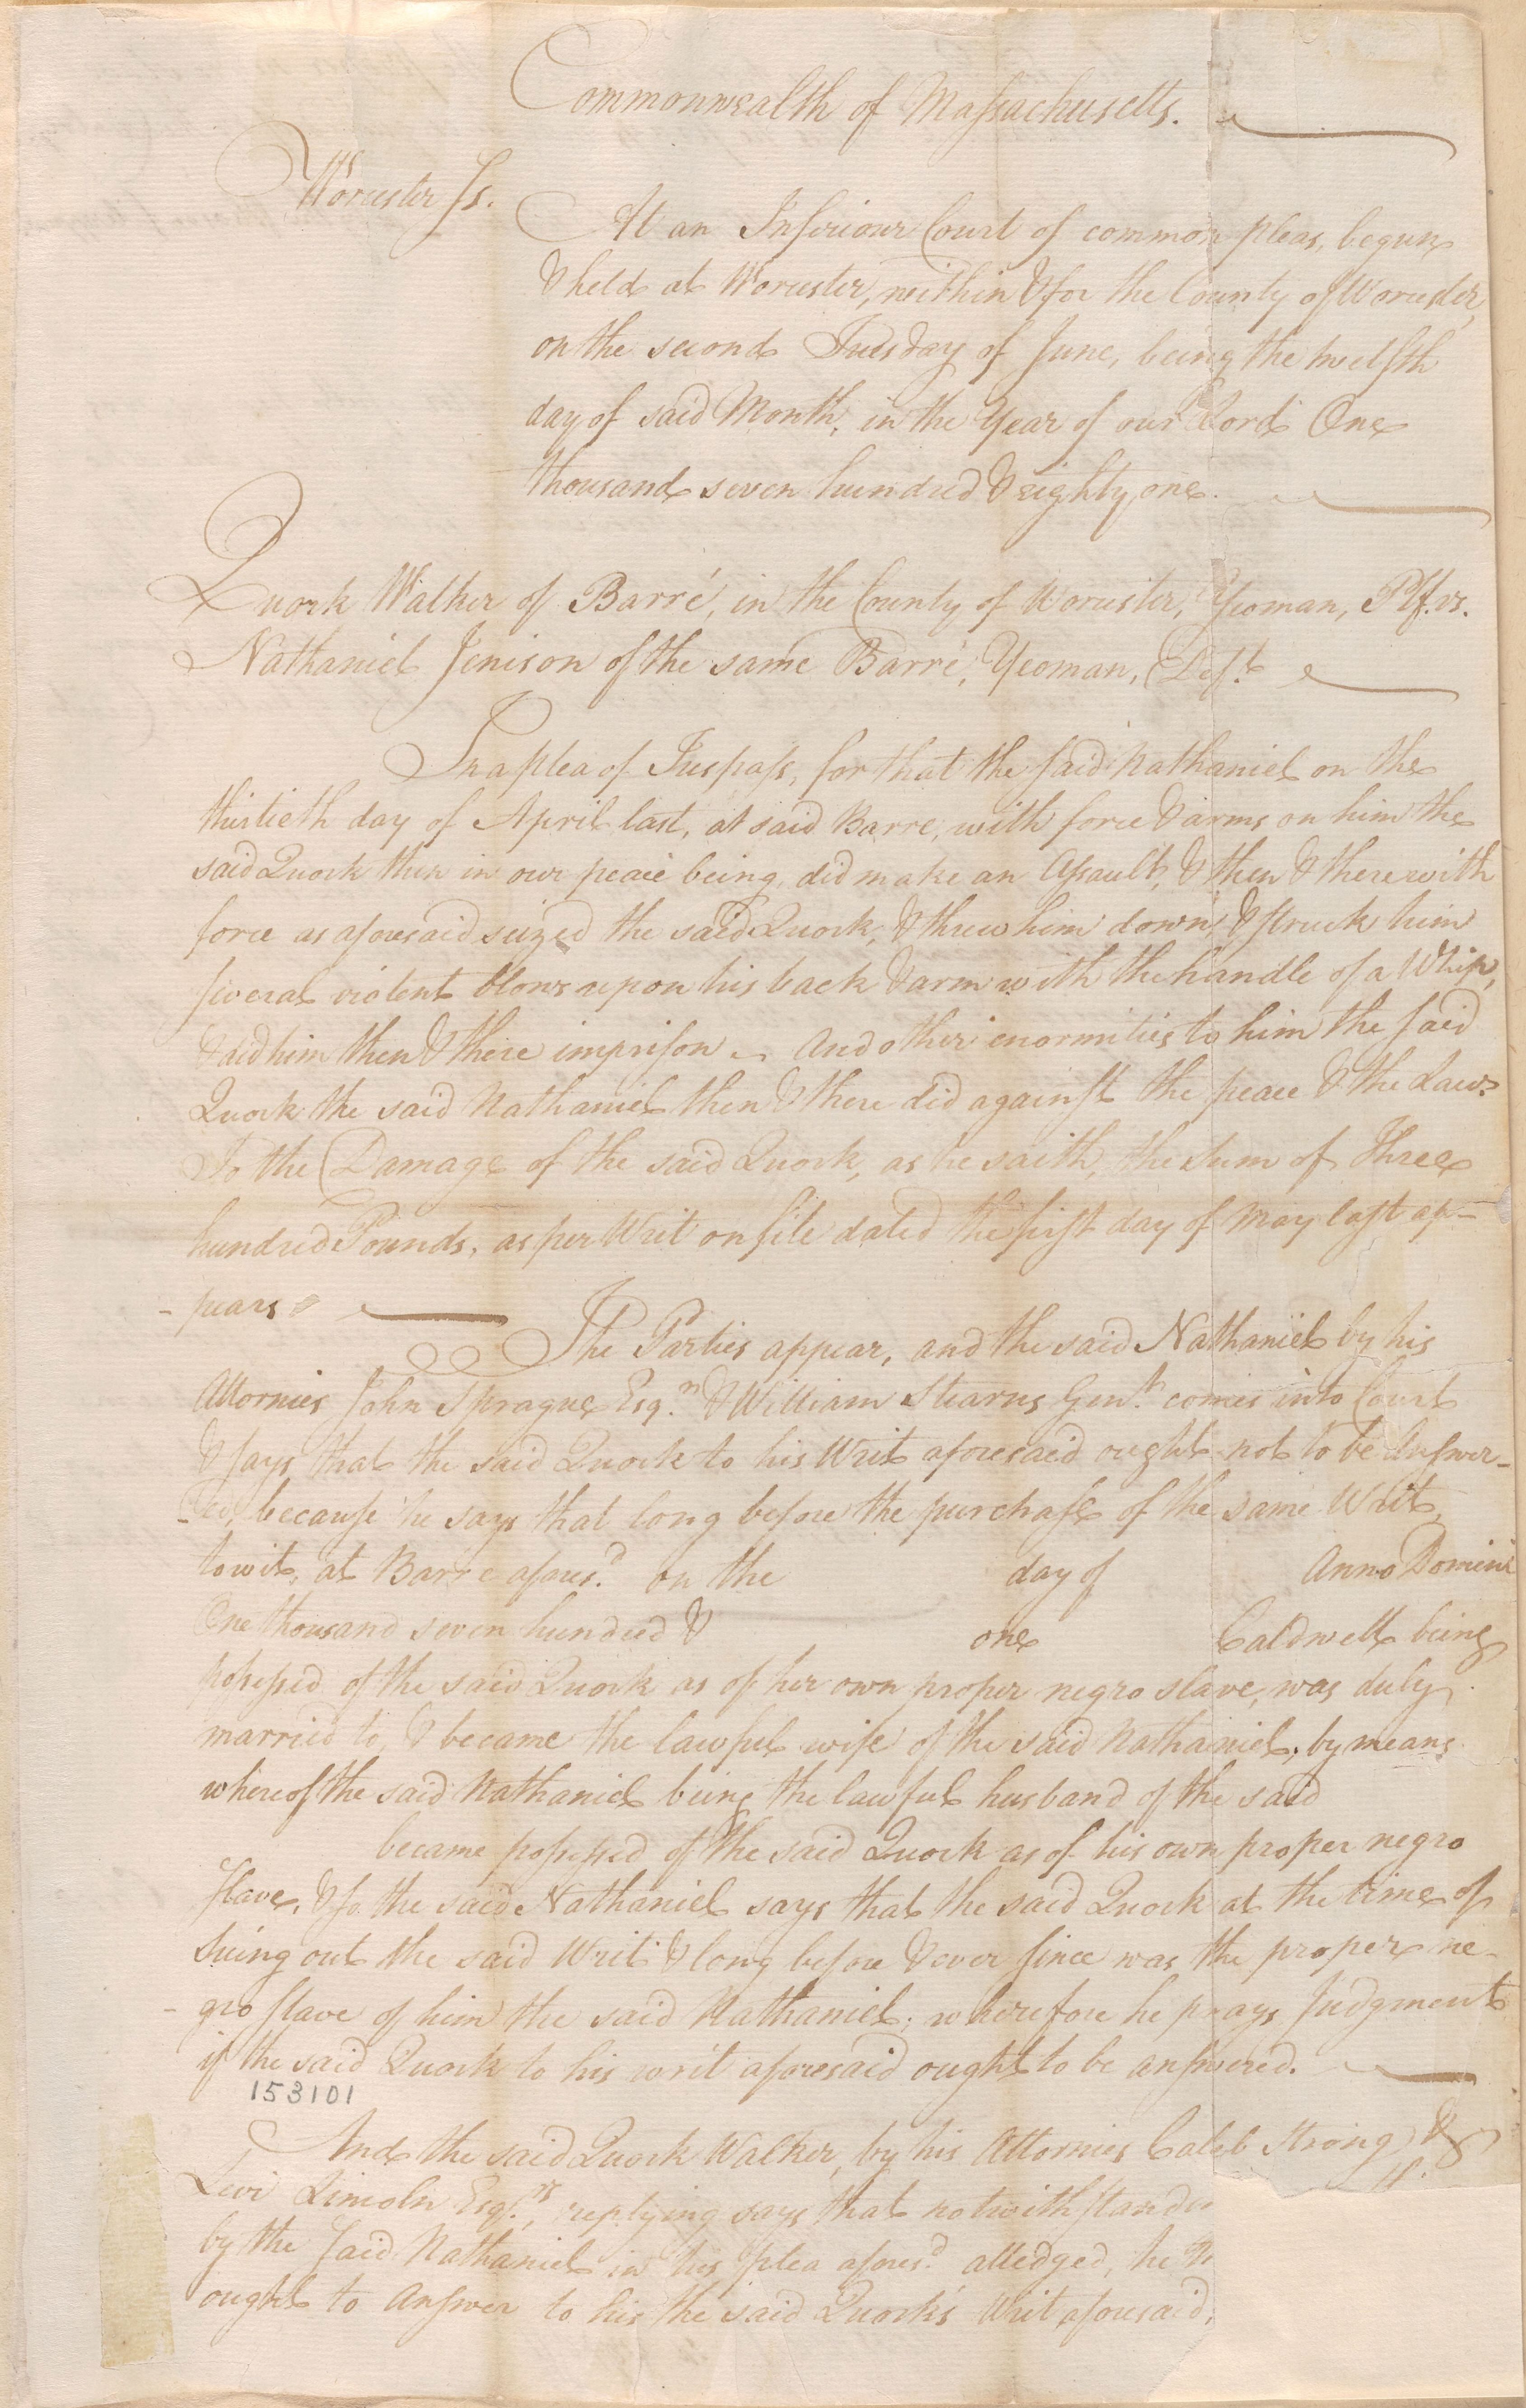 Commonwealth of Massachusetts.
Worcester Ss.
At an Inferiour Court of common pleas, begun
& held at Worcester, within & for the County of Worcester,
on the second Tuesday of June, being the twelfth
day of said Month, in the Year of our Lord One
thousand seven hundred & eighty one.
Quork Walker of Barré, in the County of Worcester, Yeoman, Plf. vs.
Nathaniel Jenison of the same Barré, Yeoman, Deft.
In a plea of Trespass, for that the said Nathaniel on the
thirtieth day of April last, at said Barre, with force & arms, on him the
said Quork then in our peace being, did make an Assault, & then & there with
force as aforesaid seized the said Quork, & threw him down, & struck him
several violent blows upon his back & arm with the handle of a Whip,
& did him then & there imprison. And other enormities to him the said
Quork the said Nathaniel then & there did against the peace & the Laws
To the Damage of the said Quork, as he saith, the Sum of Three
hundred Pounds, as per Writ on file dated the first day of May last ap-
-pears
The Parties appear, and the said Nathaniel by his
Attornies John Sprague Esqr. & William Stearns Gent. comes into Court
& says that the said Quork to his Writ aforesaid ought not to be Answer-
-ed, because he says that long before the purchase of the same Writ,
towit, at Barre afores.d on the day of Anno Domini
One thousand seven hundred & one Caldwell being
possessed of the said Quork as of her own proper negro slave, was duly
married to, & became the lawful wife of the said Nathaniel, by means
whereof the said Nathaniel being the lawful husband of the said
became possessed of the said Quork as of his own proper negro
slave, & so the said Nathaniel says that the said Quork at the time of
suing out the said Writ & long before & ever since was the proper ne-
-gro slave of him the said Nathaniel; wherefore he prays Judgment
if the said Quork to his writ aforesaid ought to be answered.
153101
And the said Quork Walker, by his Attornies Caleb Strong &
Levi Lincoln Esqrs., replying says that notwithstandi
by the said Nathaniel in his plea afores.d alledged, he
ought to Answer to his the said Quork's Writ aforesaid,